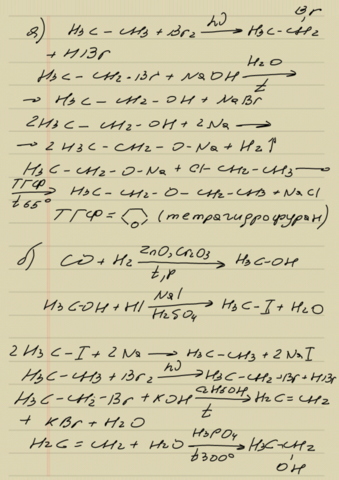 Br
а) H3C – CH3 + Br2 —hν→ H3C – CH2
+ HBr
H3C – CH2 – Br + NaOH —H2O/t→
→ H3C – CH2 – OH + NaBr
2H3C – CH2 – OH + 2Na →
→ 2H3C – CH2 – O – Na + H2↑
H3C – CH2 – O – Na + Cl – CH2 – CH3 —
ТГФ/t 65°→ H3C – CH2 – O – CH2 – CH3 + NaCl
ТГФ = O (тетрагидрофуран)
б) CO + H2 —ZnO, Cr2O3/t, p→ H3C – OH
H3C – OH + HI —NaI/H2SO4→ H3C – I + H2O
2H3C – I + 2Na → H3C – CH3 + 2NaI
H3C – CH3 + Br2 —hν→ H3C – CH2 – Br + HBr
H3C – CH2 – Br + KOH —C2H5OH/t→ H2C = CH2
+ KBr + H2O
H2C = CH2 + H2O —H3PO4/t 300°→ H3C – CH2
OH